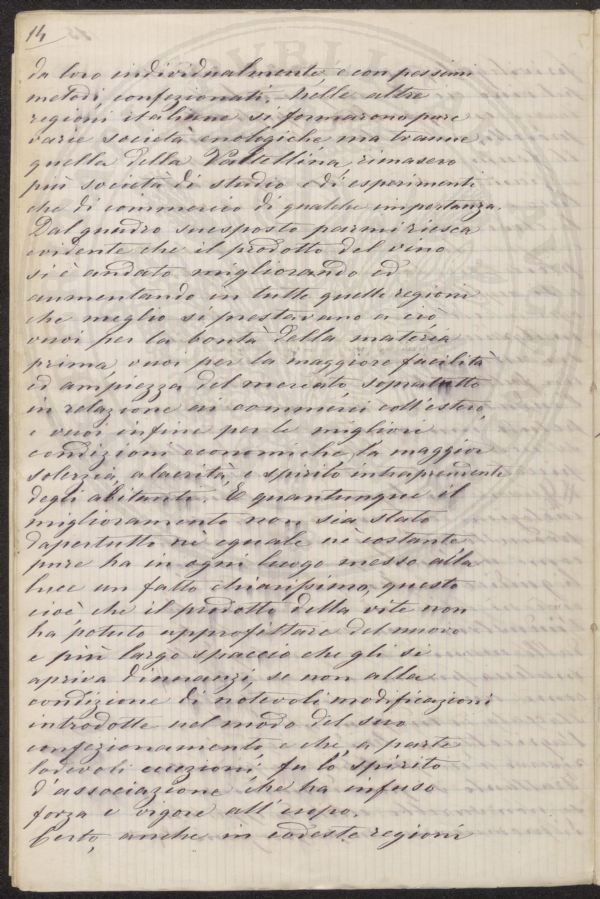 14
da loro individualmente, e con pessimi
metodi, confezionati. Nelle altre
regioni italiane si formarono pure
varie società enologiche ma tranne
quella della Valtellina rimasero
più società di studio e di esperimenti
che di commercio di qualche importanza.
Dal quadro suesposto parmi riesca
evidente che il prodotto del vino
si è andato migliorando ed
aumentando in tutte quelle regioni
che meglio si prestavano a ciò
vuoi per la bontà della materia
prima, vuoi per la maggiore facilità
ed ampiezza del mercato sopratutto
in relazione ai commerci coll'estero,
e vuoi infine per le migliori
condizioni economiche, la maggior
solerzia, alacrità, e spirito intraprendente
degli abitanti. E quantunque il
miglioramento non sia stato
dapertutto nè eguale nè costante
pure ha in ogni luogo messo alla
luce un fatto chiarissimo, questo
cioè, che il prodotto della vite non
ha potuto approfittare del nuovo
e più largo spaccio che gli si
apriva dinnanzi, se non alla
condizione di notevoli modificazioni
introdotte nel modo del suo
confezionamento e che, a parte
lodevoli eccezioni, fu lo spirito
d'associazione che ha infuso
forza e vigore all'uopo.
Certo, anche in codeste regioni